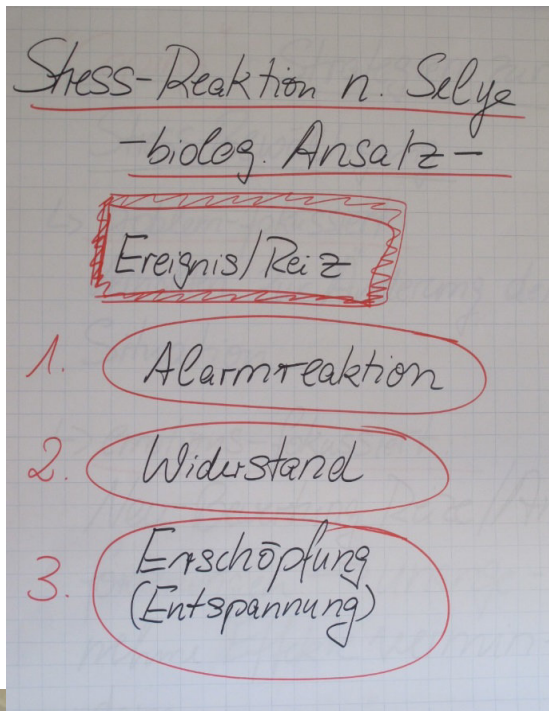 Stress-Reaktion n. Selye
-biolog. Ansatz-
Ereignis/Reiz
1. Alarmreaktion
2. Widerstand
3. Erschöpfung
(Entspannung)